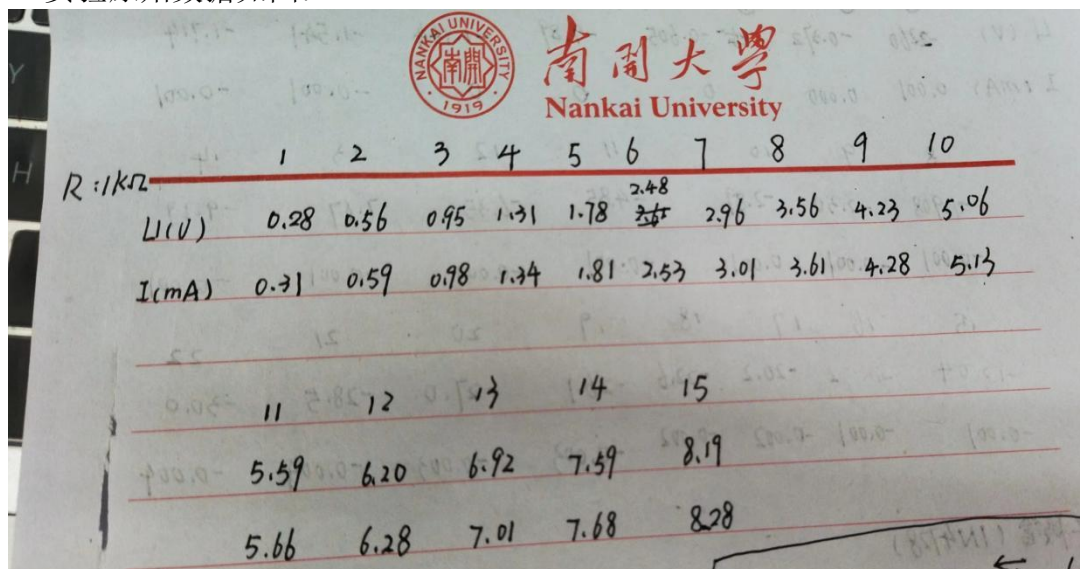 NANKAI UNIVERSITY
南開
1919
南開大學
Nankai University
1 2 3 4 5 6 7 8 9 10
R:1kΩ
2.48
U(V) 0.28 0.56 0.95 1.31 1.78 2.96 3.56 4.23 5.06
I(mA) 0.31 0.59 0.98 1.34 1.81 2.53 3.01 3.61 4.28 5.13
11 12 13 14 15
5.59 6.20 6.92 7.59 8.19
5.66 6.28 7.01 7.68 8.28
Y
H